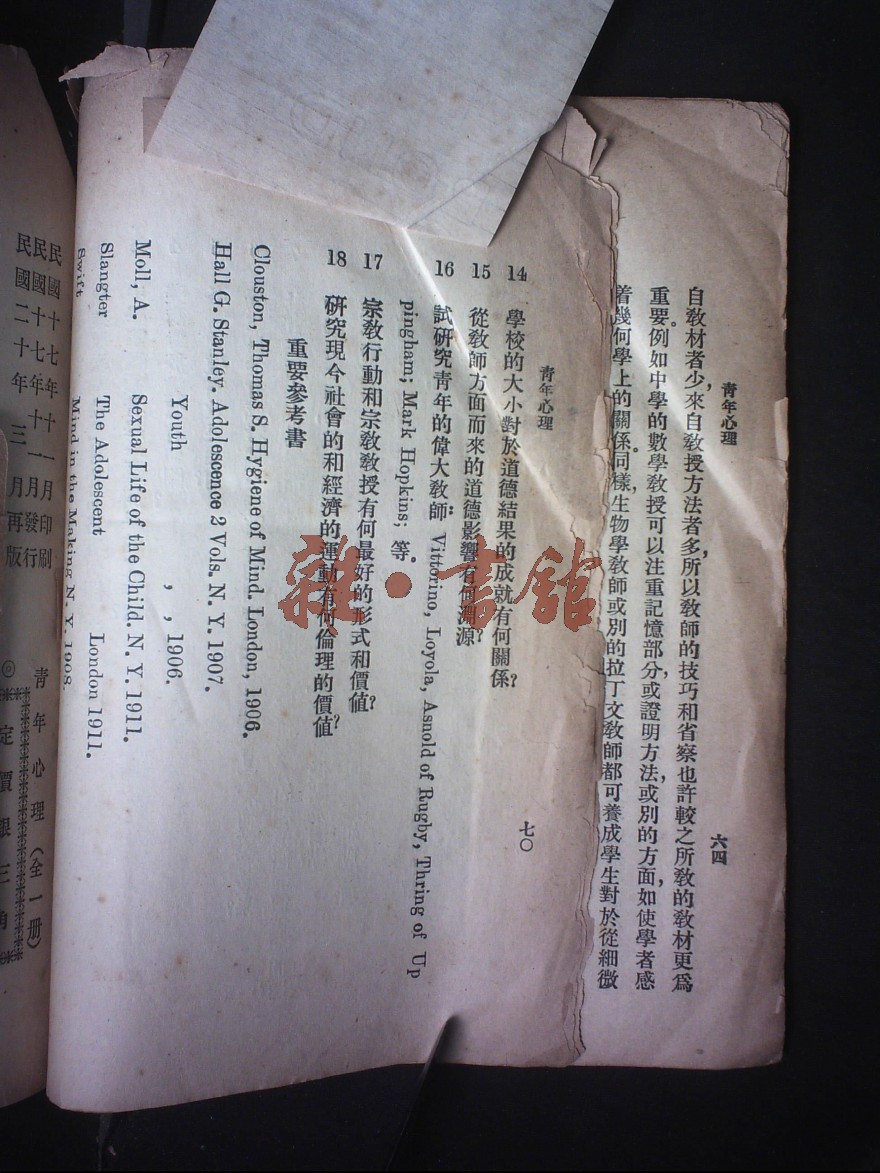 青年心理
六四
自敎材者少，來自敎授方法者多，所以敎師的技巧和省察也許較之所敎的敎材更爲
重要。例如中學的數學敎授可以注重記憶部分，或證明方法，或別的方面，如使學者感
着幾何學上的關係。同樣，生物學敎師或別的拉丁文敎師都可養成學生對於從細微
青年心理
七〇
14 學校的大小對於道德結果的成就有何關係？
15 從敎師方面而來的道德影響有何淵源？
16 試研究靑年的偉大敎師：Vittorino, Loyola, Asnold of Rugby, Thring of Up
pingham; Mark Hopkins; 等。
17 宗敎行動和宗敎敎授有何最好的形式和價値？
18 研究現今社會的和經濟的運動有何倫理的價値？
重要參考書
Clouston, Thomas S. Hygiene of Mind. London, 1906.
Hall G. Stanley. Adolescence 2 Vols. N. Y. 1907.
Youth , , 1906.
Moll, A. Sexual Life of the Child. N. Y. 1911.
Slangter The Adolescent London 1911.
Swift Mind in the Making N. Y. 1908.
民國十七年十一月印刷
民國十七年十一月發行
民國二十年三月再版
靑年心理（全一册）
◎定價銀三角
雜·書館